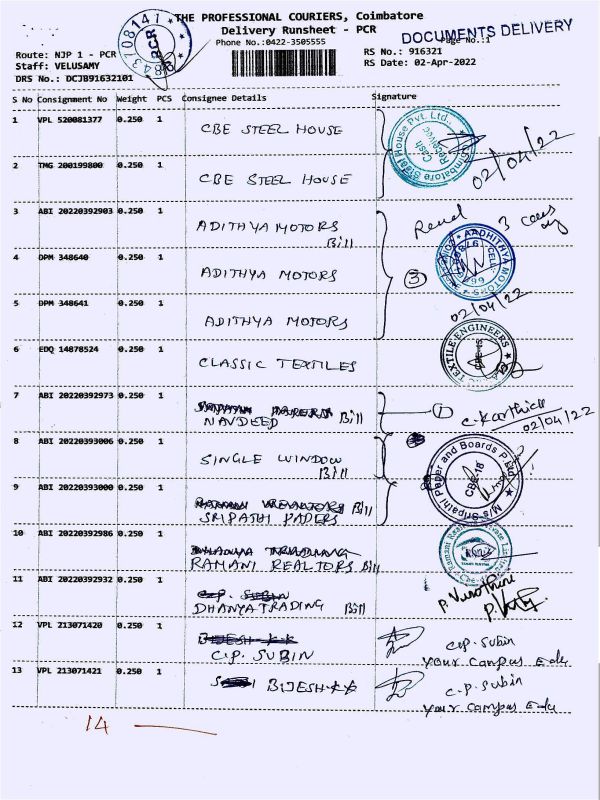 THE PROFESSIONAL COURIERS, Coimbatore
Delivery Runsheet - PCR
DOCUMENTS DELIVERY
Phone No.:0422-3505555
Page No.:1
Route: NJP 1 - PCR
RS No.: 916321
Staff: VELUSAMY
RS Date: 02-Apr-2022
DRS No.: DCJB91632101
PCR
S No Consignment No Weight PCS Consignee Details Signature
1 VPL 520081377 0.250 1 CBE STEEL HOUSE
02/04/22
2 TMG 200199800 0.250 1 CBE STEEL HOUSE
3 ABI 20220392903 0.250 1 ADITHYA MOTORS
Bill
4 DPM 348640 0.250 1 ADITHYA MOTORS
3
5 DPM 348641 0.250 1 ADITHYA MOTORS
02/04/22
6 EDQ 14878524 0.250 1 CLASSIC TEXTILES
7 ABI 20220392973 0.250 1
NAVDEED Bill
1 C.Karthick
02/04/22
8 ABI 20220393006 0.250 1 SINGLE WINDOW
Bill
M/s Sripathi Paper and Boards P Ltd
CBE-18
9 ABI 20220393000 0.250 1 Bill
SRIPATHI PAPERS
10 ABI 20220392986 0.250 1
RAMANI REALTORS Bill
11 ABI 20220392932 0.250 1 C.P. SUBIN
DHANYA TRADING Bill
12 VPL 213071420 0.250 1 BIJESH-K-K
C.P. SUBIN
C.P. Subin
Your Campus Edu
13 VPL 213071421 0.250 1 BIJESH-KK
C.P. Subin
Your Campus Edu
14